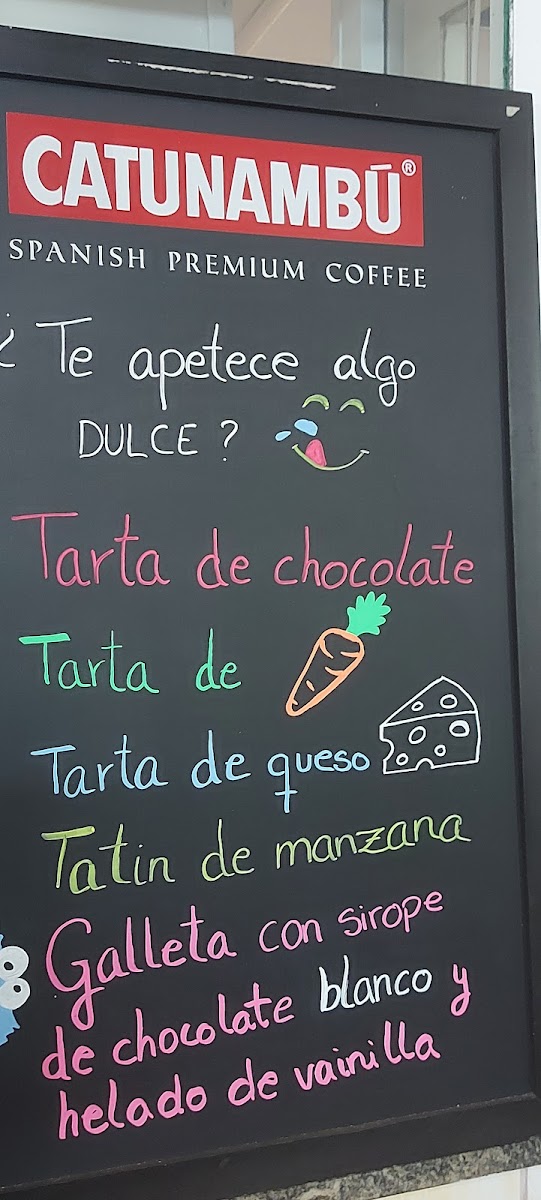 CATUNAMBÚ®
SPANISH PREMIUM COFFEE
¿Te apetece algo
DULCE?
Tarta de chocolate
Tarta de
Tarta de queso
Tatin de manzana
Galleta con sirope
de chocolate blanco y
helado de vainilla